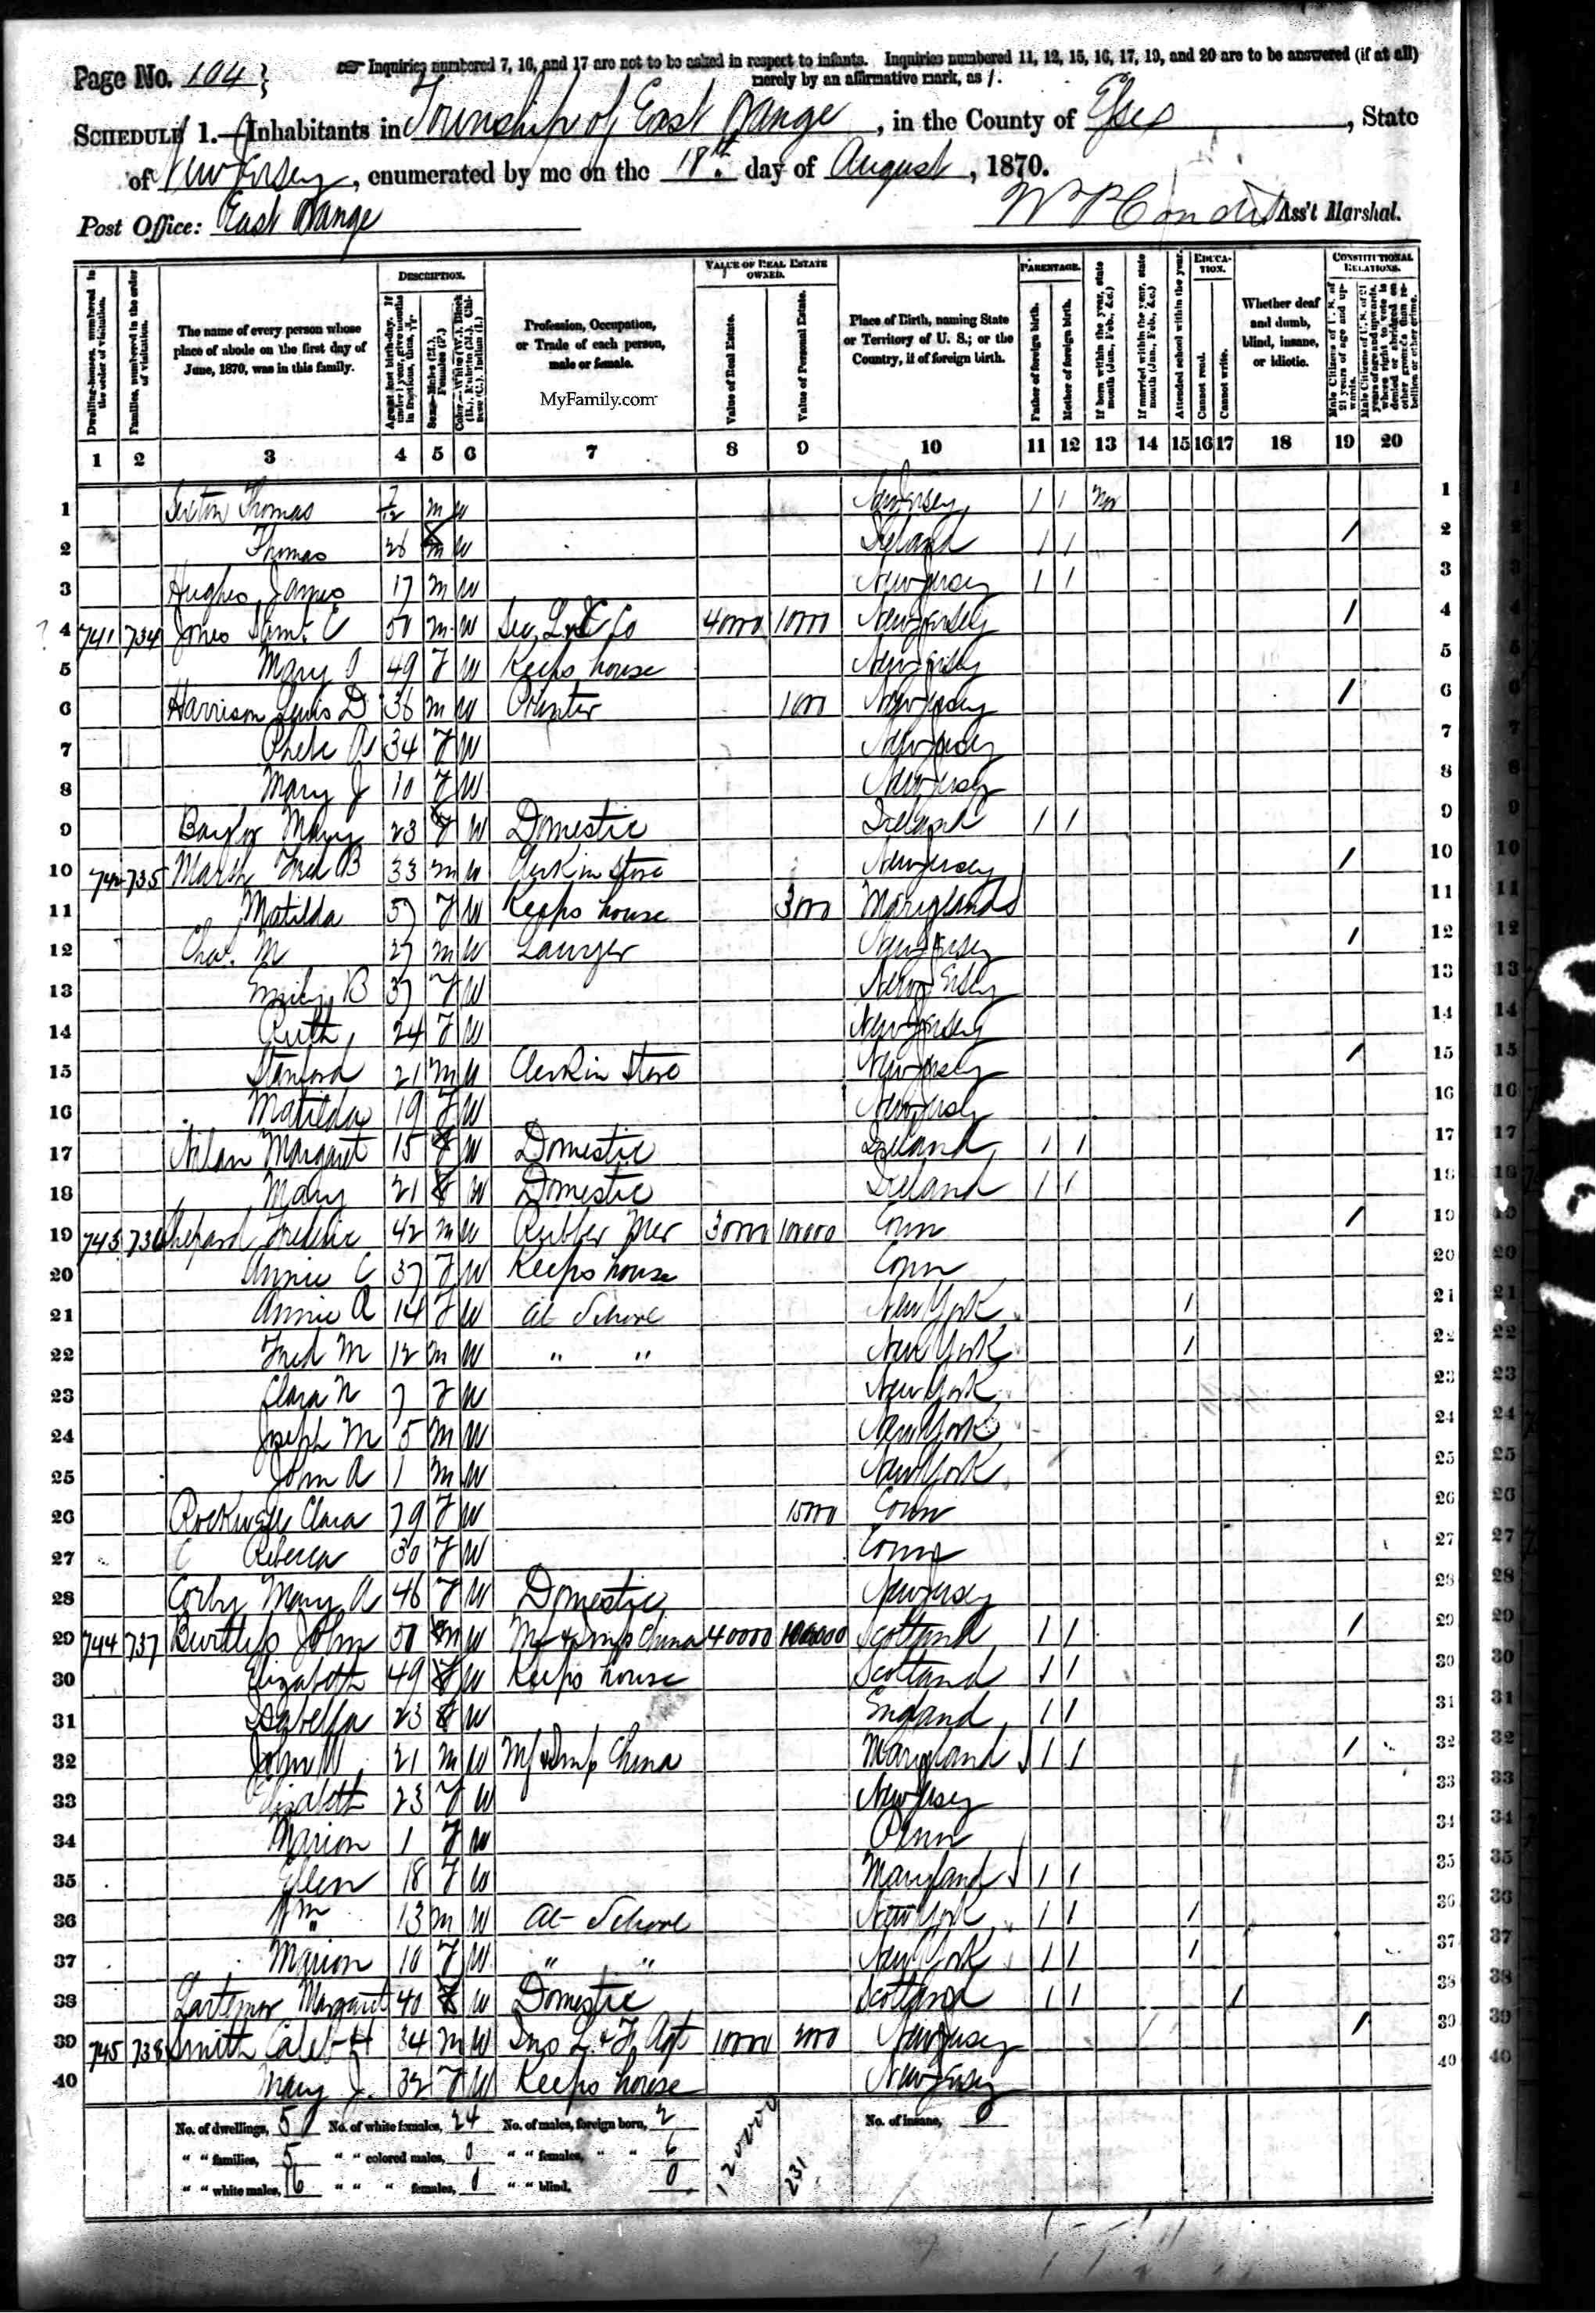 Page No. 104
Inquiries numbered 7, 16, and 17 are not to be asked in respect to infants. Inquiries numbered 11, 12, 15, 16, 17, 19, and 20 are to be answered (if at all)
merely by an affirmative mark, as /.
SCHEDULE 1.—Inhabitants in Township of East Orange, in the County of Essex, State
of New Jersey, enumerated by me on the 18th. day of August, 1870.
Post Office: East Orange
Wm P Condit Ass't Marshal.
Dwelling-houses, numbered in the order of visitation.
Families, numbered in the order of visitation.
The name of every person whose place of abode on the first day of June, 1870, was in this family.
DESCRIPTION.
Profession, Occupation, or Trade of each person, male or female.
MyFamily.com
VALUE OF REAL ESTATE OWNED.
Value of Real Estate.
Value of Personal Estate.
Place of Birth, naming State or Territory of U. S.; or the Country, if of foreign birth.
PARENTAGE.
Father of foreign birth.
Mother of foreign birth.
If born within the year, state month (Jan., Feb., &c.)
If married within the year, state month (Jan., Feb., &c.)
Attended school within the year.
EDUCATION.
Cannot read.
Cannot write.
Whether deaf and dumb, blind, insane, or idiotic.
CONSTITUTIONAL RELATIONS.
1 2 3 4 5 6 7 8 9 10 11 12 13 14 15 16 17 18 19 20
1 Thomas m W New Jersey / / 1
2 Thomas 26 m W Ireland / / / 2
3 Hughes James 17 m W New Jersey / / 3
4 741 734 Jones Saml. C 50 m W New Jersey / 4
5 Mary 49 F W Keeps house New Jersey 5
6 Harrison Lewis D 36 m W New Jersey / 6
7 Phebe A 34 F W New Jersey 7
8 Mary J 10 F W New Jersey 8
9 Mary 23 F W Domestic Ireland / / 9
10 742 735 Marsh Fred B 33 m W Clerk in Store New Jersey / 10
11 Matilda 57 F W Keeps house 3000 Maryland 11
12 Chas. M 27 m W Lawyer New Jersey / 12
13 Emily B 37 F W New Jersey 13
14 Ruth 24 F W New Jersey 14
15 Stanford 21 m W Clerk in Store New Jersey / 15
16 Matilda 19 F W New Jersey 16
17 Margaret 15 F W Domestic Ireland / / 17
18 Mary 21 F W Domestic Ireland / / 18
19 743 736 Shepard Fredric 42 m W Rubber Mer 30000 100000 Conn / 19
20 Annie C 37 F W Keeps house Conn 20
21 Annie A 14 F W At School New York / 21
22 Fred M 12 m W " " New York / 22
23 Clara N 7 F W New York 23
24 Joseph M 5 m W New York 24
25 John A 1 m W New York 25
26 Rockwell Clara 79 F W 15000 Conn 26
27 Rebecca 30 F W Conn 27
28 Corby Mary A 46 F W Domestic New Jersey 28
29 744 737 John 50 m W China 40000 Scotland / / / 29
30 Elizabeth 49 F W Keeps house Scotland / / 30
31 Isabella 23 F W England / / 31
32 John W 21 m W Mf & Imp China Maryland / / / 32
33 Elizabeth 23 F W New Jersey 33
34 Marion 1 F W Penn 34
35 Ellen 18 F W Maryland / / 35
36 Wm 13 m W At School New York / / / 36
37 Marion 10 F W " " New York / / / 37
38 Margaret 40 F W Domestic Scotland / / / 38
39 745 738 Smith Caleb H 34 m W Ins L & F Agt New Jersey / 39
40 Mary J. 32 F W Keeps house New Jersey 40
No. of dwellings, 5 No. of white females, 24 No. of males, foreign born, 2 No. of insane, 0
" " families, 5 " " colored males, 0 " " females, " " 6
" " white males, 16 " " " females, 0 " " blind, 0
120000
231